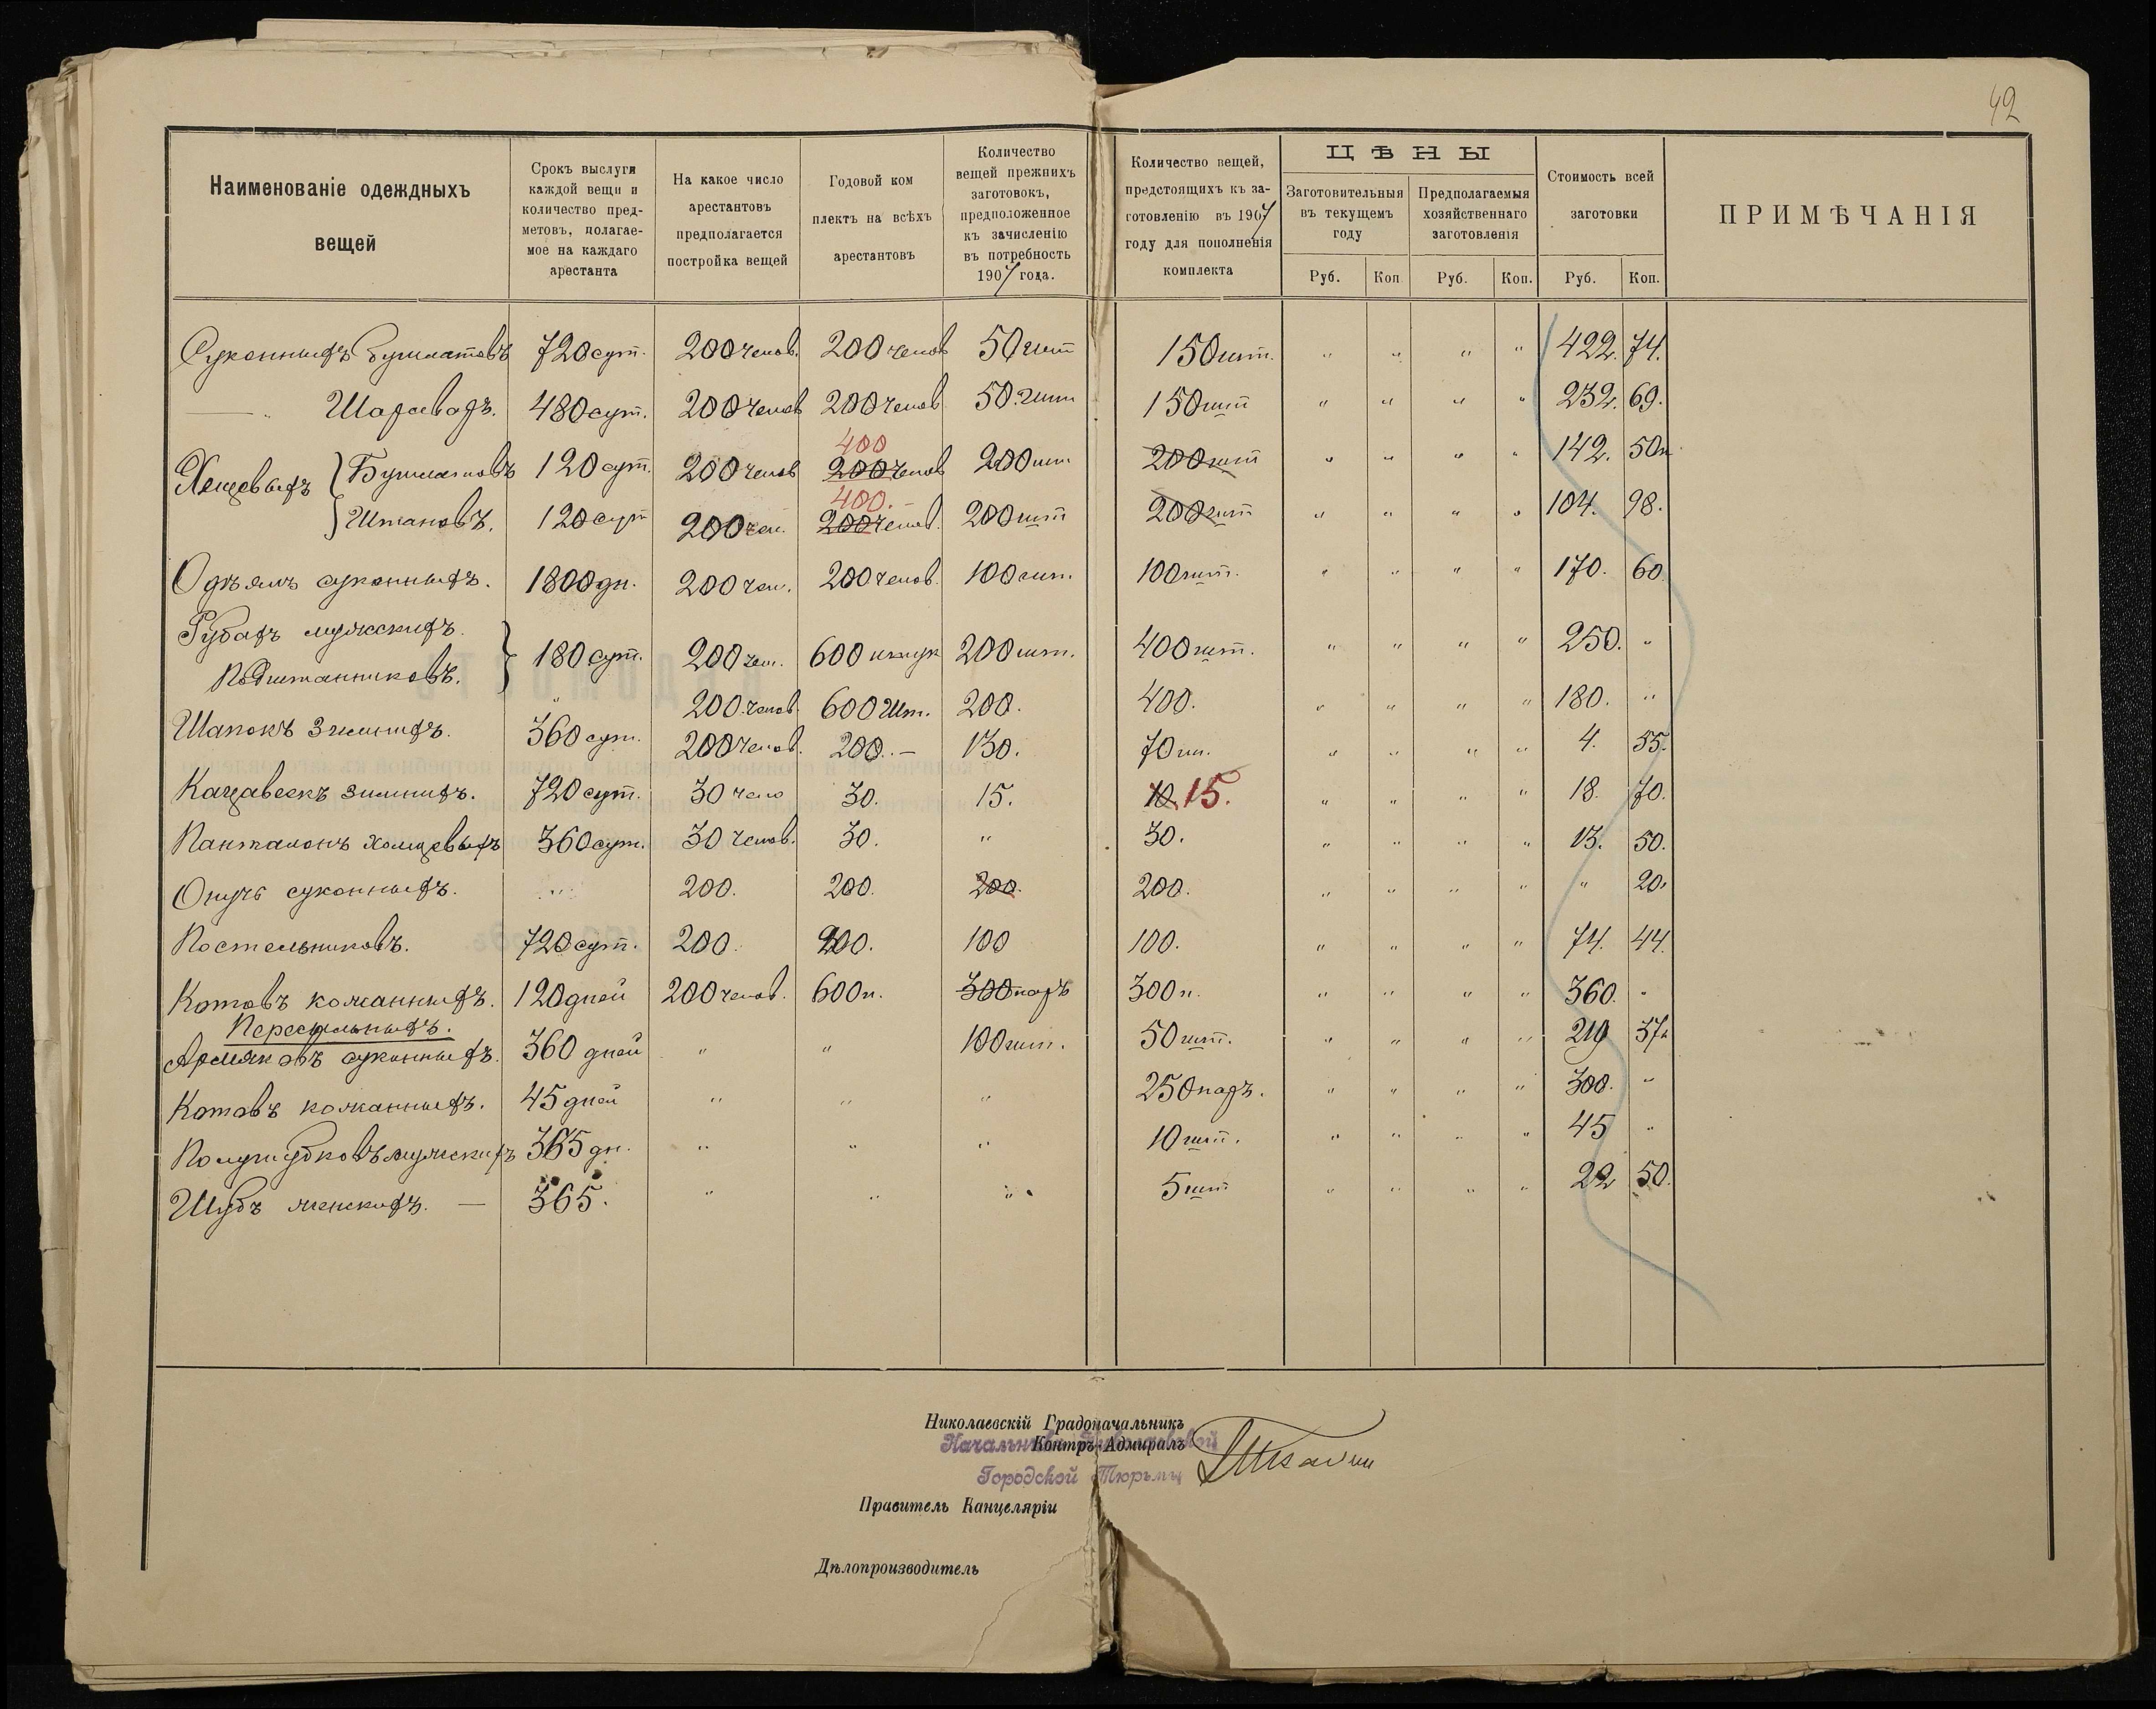 42
Наименованіе одеждныхъ
вещей
Срокъ выслуги
каждой вещи и
количество пред-
метовъ, полагае-
мое на каждаго
арестанта
На какое число
арестантовъ
предполагается
постройка вещей
Годовой ком
плектъ на всѣхъ
арестантовъ
Количество
вещей прежнихъ
заготовокъ,
предположенное
къ зачисленію
въ потребность
1907 года.
Количество вещей,
предстоящихъ къ за-
готовленію въ 1907
году для пополненія
комплекта
ЦѢНЫ
Заготовительныя
въ текущемъ
году
Предполагаемыя
хозяйственнаго
заготовленія
Руб. Коп Руб. Коп.
Стоимость всей
заготовки
Руб. Коп.
ПРИМѢЧАНІЯ
Суконныхъ бушлатовъ 720 сут. 200 челов. 200 челов 50 шт 150 шт. " " " " 422. 74.
— " Шароваръ. 480 сут. 200 челов 200 челов 50. шт 150 шт " " " " 232. 69.
400
Холщевыхъ { Бушлатовъ 120 сут. 200 челов 200 челов 200 шт 200 шт " " " " 142. 50
400.
Штановъ. 120 сут 200 чел. 200 челов. 200 шт 200 шт " " " " 104. 98.
Одѣялъ суконныхъ. 1800 дн. 200 чел. 200 челов. 100 шт. 100 шт. " " " " 170. 60
Рубахъ мужскихъ. } 180 сут. 200 чел. 600 штук 200 шт. 400 шт. " " " " 250. "
Подштанниковъ. " 200 челов. 600 Шт. 200. 400. " " " " 180. "
Шапокъ зимнихъ. 360 сут. 200 челов. 200. — 130. 70 шт. " " " " 4. 55.
Кацавеекъ зимнихъ. 720 сут. 30 чело 30. 15. 10. 15. " " " " 18. 70.
Панталонъ холщевыхъ 360 сут. 30 челов. 30. " 30. " " " " 13. 50.
Онучъ суконныхъ. " 200. 200. 200. 200. " " " " " 20.
Постельниковъ. 720 сут. 200. 200. 100 100. " " " " 74. 44.
Котовъ кожанныхъ. 120 дней 200 челов. 600 п. 300 паръ 300 п. " " " " 360. "
Пересыльныхъ.
Армяковъ суконныхъ. 360 дней " " 100 шт. 50 шт. " " " " 219 37
Котовъ кожанныхъ. 45 дней " " " 250 паръ. " " " " 300. "
Полушубковъ мужских 365 дн. " " " 10 шт. " " " " 45 "
Шубъ женскихъ. — 365. " " " 5 шт " " " " 22 50.
Николаевскій Градоначальникъ
Контръ-Адмиралъ
Начальникъ Николаевской
Городской Тюрьмы
Правитель Канцеляріи
Дѣлопроизводитель